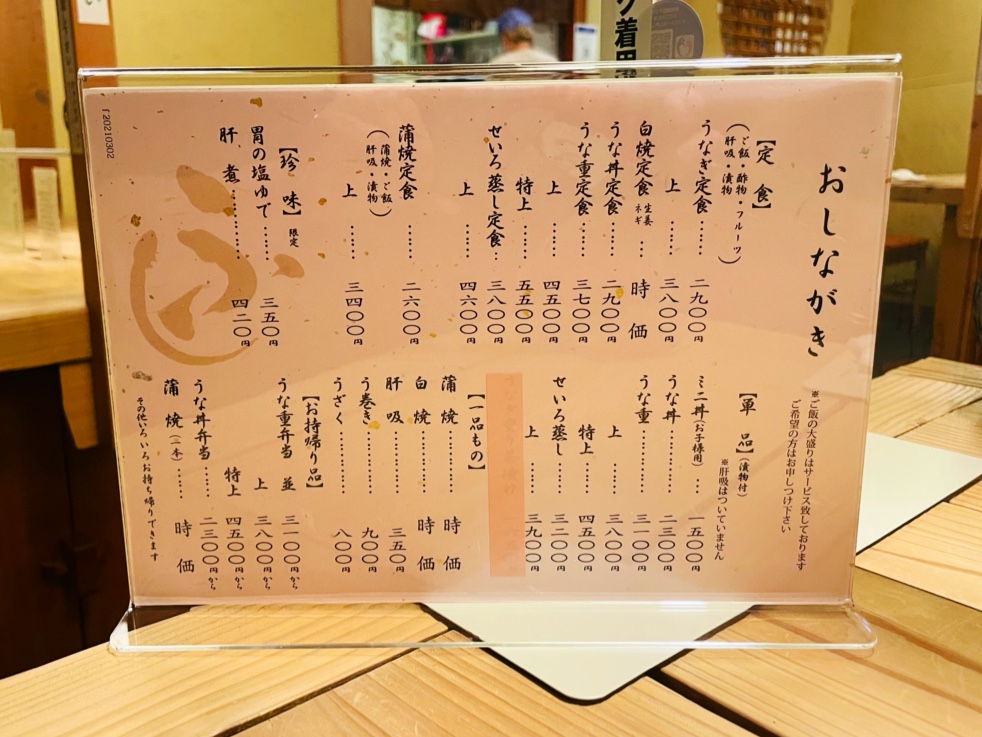 おしながき
※ご飯の大盛りはサービス致しております
ご希望の方はお申しつけ下さい
【定食】
(ご飯・酢物・フルーツ
肝吸・漬物)
うなぎ定食……二九〇〇円
上……三八〇〇円
白焼定食 生姜ネギ…時価
うな丼定食……二九〇〇円
うな重定食……三七〇〇円
上……四五〇〇円
特上……五五〇〇円
せいろ蒸し定食…三八〇〇円
上……四六〇〇円
蒲焼定食……二六〇〇円
(蒲焼・ご飯
肝吸・漬物)
上……三四〇〇円
【珍味】限定
胃の塩ゆで……三五〇円
肝煮…………四二〇円
【単品】(漬物付)
※肝吸はついていません
ミニ丼(お子様用)…一五〇〇円
うな丼…………二三〇〇円
うな重…………三一〇〇円
上……三八〇〇円
特上……四五〇〇円
せいろ蒸し……三二〇〇円
上……三九〇〇円
【一品もの】
蒲焼…………時価
白焼…………時価
肝吸…………三五〇円
う巻き…………九〇〇円
うざく…………八〇〇円
【お持帰り品】
うな重弁当 並 三一〇〇円から
上 三八〇〇円から
特上 四五〇〇円から
うな丼弁当……二三〇〇円から
蒲焼(一本)……時価
その他いろいろお持ち帰りできます
r20210302